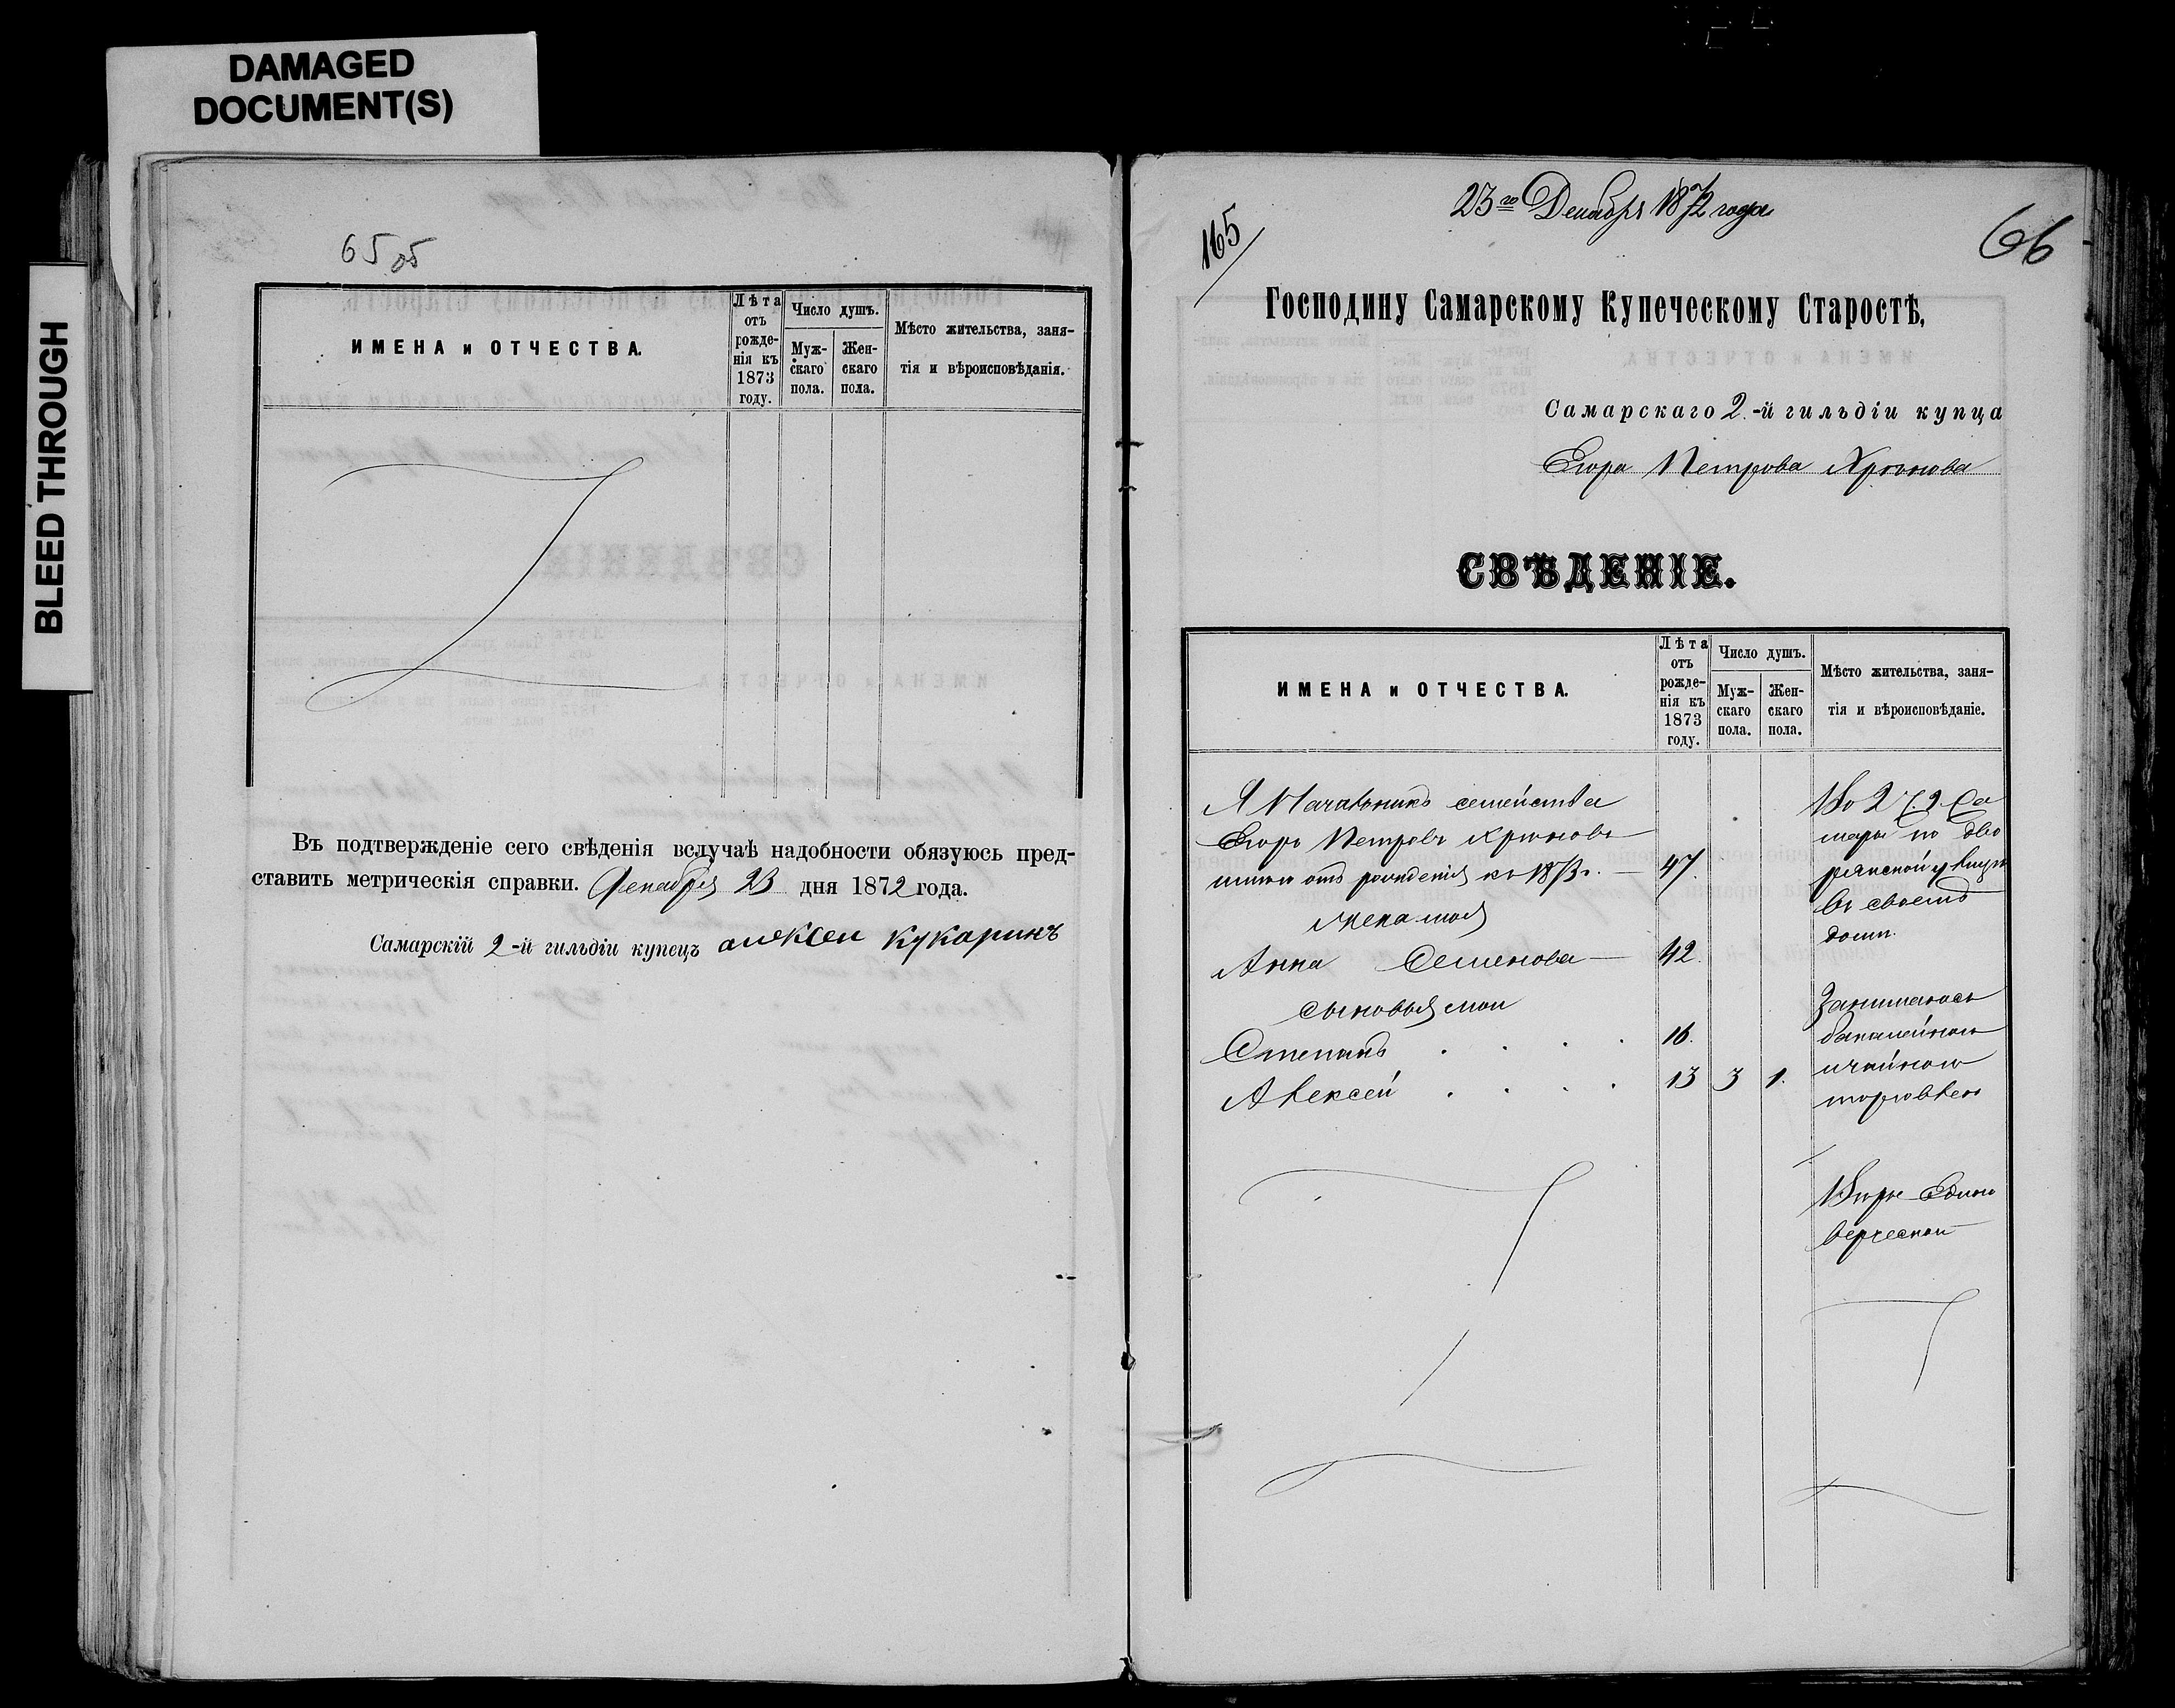 DAMAGED
DOCUMENT(S)
BLEED THROUGH
65 об
ИМЕНА и ОТЧЕСТВА.
Лѣта
отъ
рожде-
нія къ
1873
году.
Число душъ.
Муж-
скаго
пола.
Жен-
скаго
пола.
Мѣсто жительства, заня-
тія и вѣроисповѣданія.
Въ подтвержденіе сего свѣденія вслучаѣ надобности обязуюсь пред-
ставить метрическія справки. Декабря 23 дня 1872 года.
Самарскій 2-й гильдіи купецъ алексеи кукаринъ
165
23го Декабря 1872 года
66
Господину Самарскому Купеческому Старостѣ,
Самарскаго 2.-й гильдіи купца
Егора Петрова Хрюнова
СВѢДЕНІЕ.
ИМЕНА и ОТЧЕСТВА.
Лѣта
отъ
рожде-
нія къ
1873
году.
Число душъ.
Муж-
скаго
пола.
Жен-
скаго
пола.
Мѣсто жительства, заня-
тія и вѣроисповѣданіе.
Я Начальникъ семейства
Егоръ Петровъ Хрюновъ
имею отъ рожденія къ 1873 г. — 47.
жена моя
Анна Семенова — 42.
сыновья мои
Степанъ . . . . 16.
Алексей . . . . 13 3 1.
Во 2 ч. г. Са
мары по дво
рянской улице
въ своемъ
доме.
Занимаюсь
бакалейною
и чайною
торговлею
Веры Едино
верческой